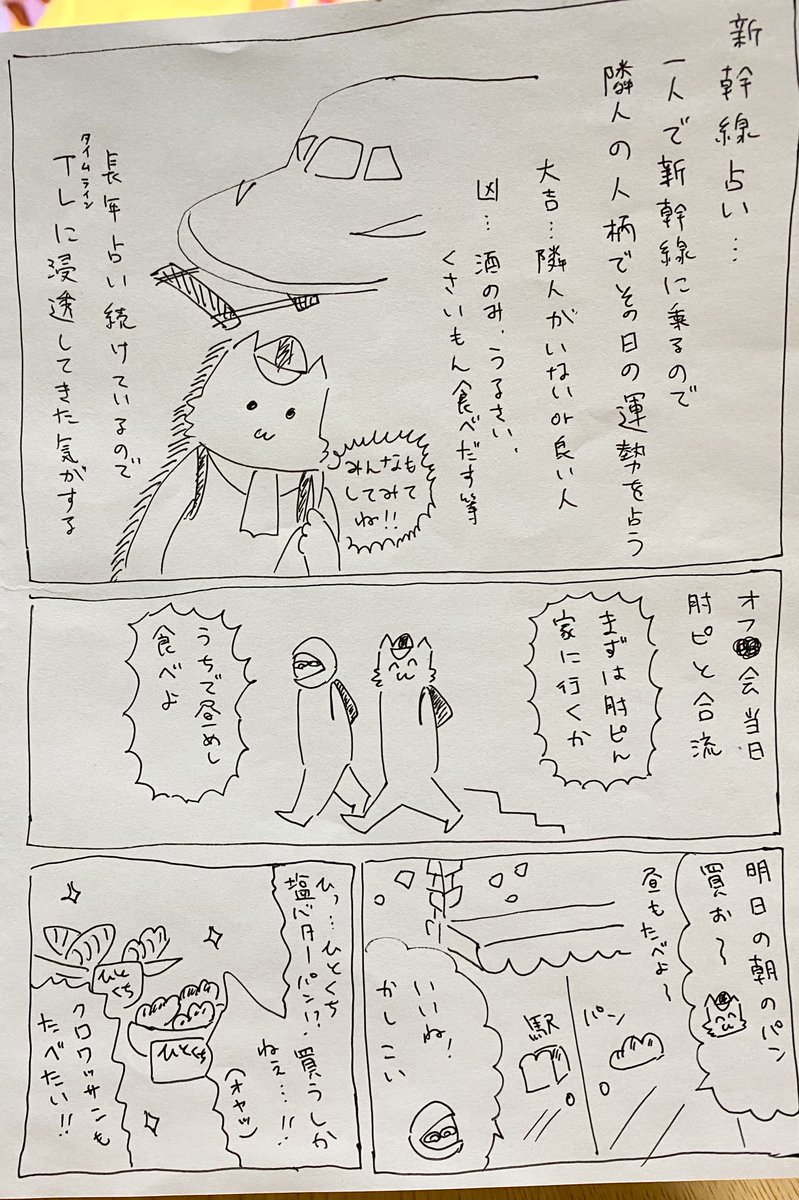 新幹線占い…
一人で新幹線に乗るので
隣人の人柄でその日の運勢を占う
大吉…隣人がいないor良い人
凶…酒のみ、うるさい、
くさいもん食べだす等
みんなも
してみて
ね!!
長年占い続けているので
タイムライン
TLに浸透してきた気がする
オフ会当日
肘ピと合流
まずは肘ピん
家に行くか
うちで昼めし
食べよ
明日の朝のパン
買お〜
昼もたべよ〜
パン
駅
いいね!
かしこい
ひっ…ひとくち
塩バターパン!?買うしか
ねえ…!!
(オヤツ)
ひとくち
ひとくち
クロワッサンも
たべたい!!